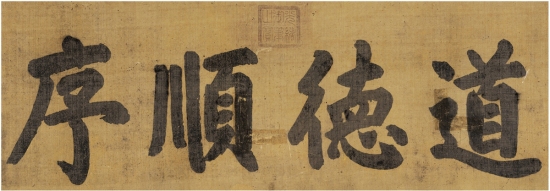 道德順序